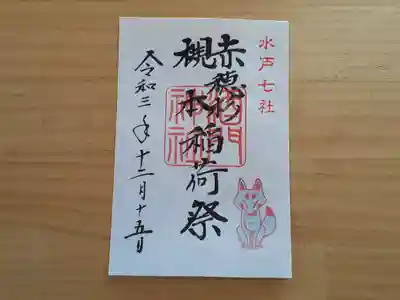 水戸七社
赤穂
槻本稲荷祭
令和三年十二月十五日